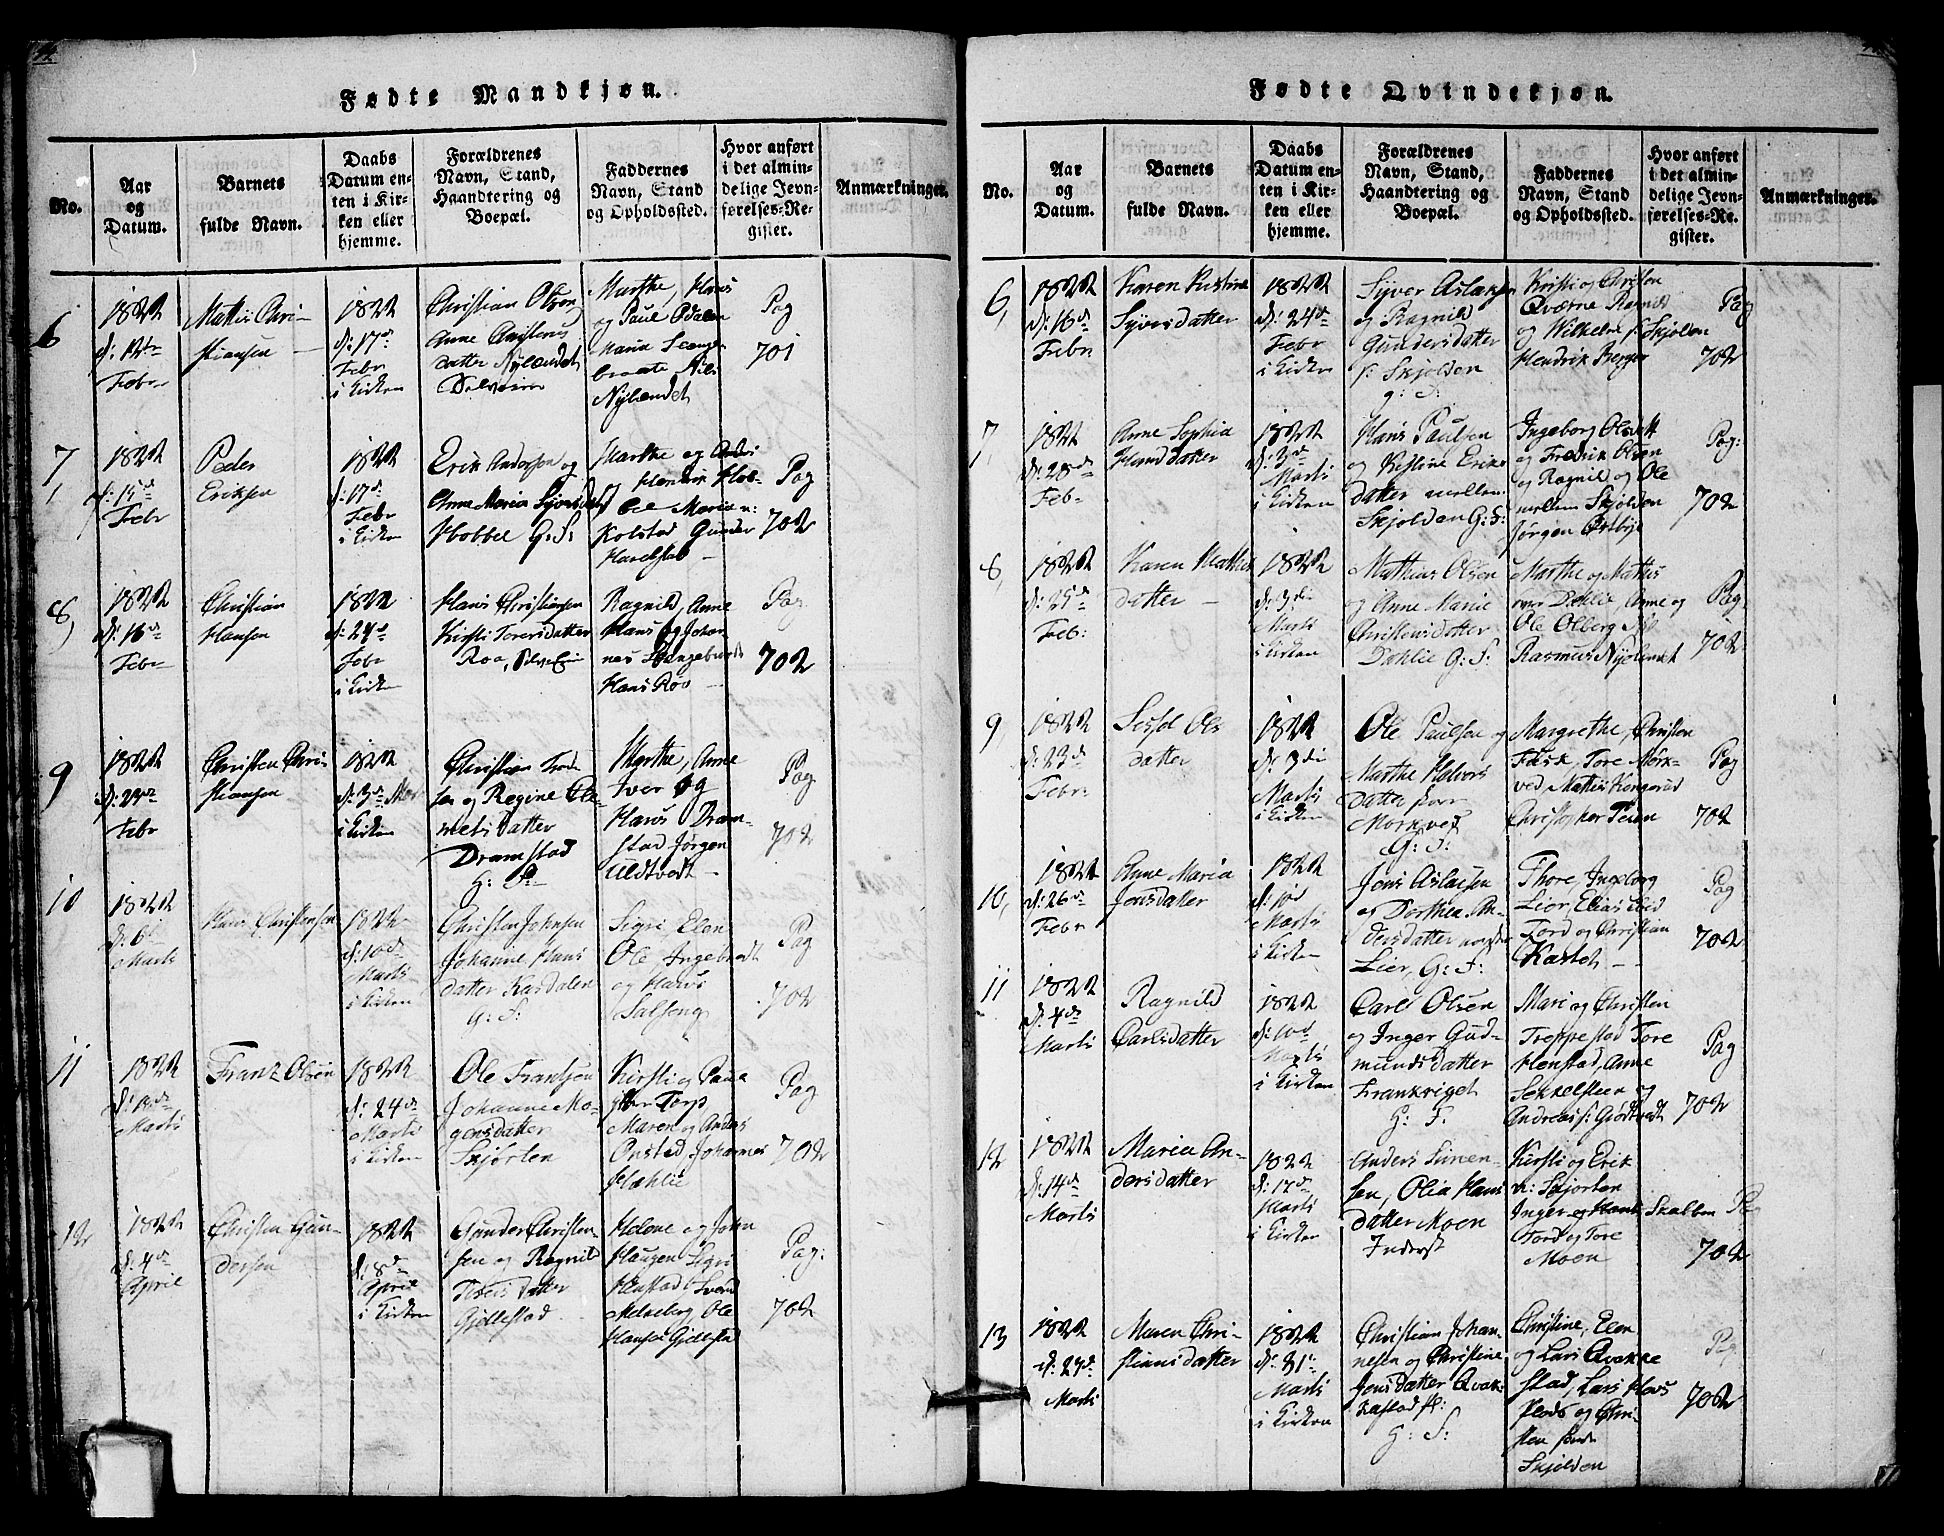 Fødte Mandkjøn.
No.
Aar
og
Datum.
Barnets
fulde Navn.
Daabs
Datum en-
ten i Kir-
ken eller
hjemme.
Forældrenes
Navn, Stand,
Haandtering og
Boepæl.
Faddernes
Navn, Stand
og Opholdssted.
Hvor anført
i det almin-
delige Jevn-
førelses-Re-
gister.
Anmærkninger.
6
1822
Febr
Mattis Chri-
stiansen
1822
d: 17de
Febr
i Kirken
Christian Olsen
Anne
datter Nylændet
Marthe, Hans
og Paul Odalen
Nils
Nylændet
Pag
701
7,
1822
d: 15de
Febr
Peder
Eriksen
1822
d: 17de
Febr
i Kirken
Erik Andersen og
Anne Maria
Hobbel G: F:
Marthe og
Hendrik Hob-
bel Maria
Kolstad Gunder
Pag
702
8,
1822
d: 16de
Febr
Christian
Hansen
1822
d: 24de
Febr
i Kirken
Hans Christiansen
Kirsti Toresdatter
Roa,
Ragnild, Anne
Hans og Johan-
nes
Hans Roa
Pag
702
9
1822
d: 23de
Febr
Christen Chri-
stiansen
1822
d: 3de
i Kirken
Christian
sen og Regine Cle-
metsdatter
Dramstad
G: F:
Marthe, Anne
Iver og
Hans Dram-
stad Jørgen
Pag
702
10
1822
d: 6te
Marti
Hans Christensen
1822
d: 10de
Marti
i Kirken
Christen Johnsen
Johanne Hans
datter Kasdalen
G: F:
Sigri, Elen
Ole Ingebredt
og Hans
Pag
702
11
1822
Marti
Franz Olsen
1822
d: 24de
Marti
i Kirken
Ole Frantzen
Johanne Mo-
gensdatter
Skjorten
Kirsti og Paul
Torp
Maren og Anders
Onstad Johannes
Mæhlie
Pag
702
12
1822
d: 4de
April
Christen Gun-
dersen
1822
d: 8de
April
i Kirken
Gunder Christen-
sen og Ragnild
datter
Gjellestad
Helene og John
Haugen Sigri
Ole
Hansen Gjellestad
Pag:
702
Fødte Qvindekjøn.
No.
Aar
og
Datum.
Barnets
fulde Navn.
Daabs
Datum en-
ten i Kir-
ken eller
hjemme.
Forældrenes
Navn, Stand,
Haandtering og
Boepæl.
Faddernes
Navn, Stand
og Opholdssted.
Hvor anført
i det almin-
delige Jevn-
førelses-Re-
gister.
Anmærkninger.
6,
1822
d: 16de
Febr
Karen Kistine
Syversdatter
1822
d: 24de
Febr
i Kirken
Syver Aslaksen
og Ragnild
Gundersdatter
Skjolden
g: F:
Kristi og Christen
Qværne Ragnild
og Wilhelm Skjolden
Hendrik Berger
Pag
702
7,
1822
d: 28de
Febr
Anne Sophia
Hansdatter
1822
d: 3de
Marti
i Kirken
Hans Paulsen
og Kistine Eriks
datter mellem
Skjolden G: F:
Ingeborg
og Fredrik Olsen
og Ragnil og Ole
mellem Skjolden
Jørgen Østbye
Pag:
702
8,
1822
d: 25de
Febr:
Karen Mathis
datter
1822
d: 3de
Marti
i Kirken
Mathias Olsen
og Anne Marie
Christensdatter
Dæhlie G: F:
Marthe og Mattis
Dæhlie, Anne og
Ole Olberg
Rasmus Nylændet
Pag
702
9,
1822
d: 23de
Febr
Ols
datter
1822
d: 3die
Marti
i Kirken
Ole Paulsen og
Marthe Halvors
datter
Morkved
G: F:
Margrethe, Christen
Tore Mørk-
ved Mattis Kongerud
Christopher
Pag
702
10,
1822
d: 26de
Febr
Anne Maria
Jonsdatter
1822
d: 10de
Marti
i Kirken
Jens Aslaksen
og Dorthea An-
dersdatter
Lier, G: F:
Thore, Ingeborg
Lier, Elias
Tord og Christian
Pag
702
11
1822
d: 4de
Marti
Ragnild
Carlsdatter
1822
d: 10de
Marti
i Kirken
Carl Olsen
og Inger Gud-
mundsdatter
Frankriget
G: F:
Mari og Christen
Treppestad Tore
Henstad, Anne
Sekkelsteen og
Andreas
Pag
702
12
1822
d: 14de
Marti
Maria An-
dersdatter
1822
d: 17de
Marti
i Kirken
Anders Simen-
sen, Olia Hans
datter Moen
Inderst
Kirsti og Erik
Skjorten
Inger og Skabben
Tord og Tore
Moen
Pag
702
13
1822
Marti
Maren Chri-
stiansdatter
1822
d: 31te
Marti
i Kirken
Christian Johan-
nesen og Christine
Jonsdatter Qvak-
kestad
G: F:
Christine, Elen
og Lars Qvakke
stad, Lars
og Chri-
sten
Skjolden
Pag
702